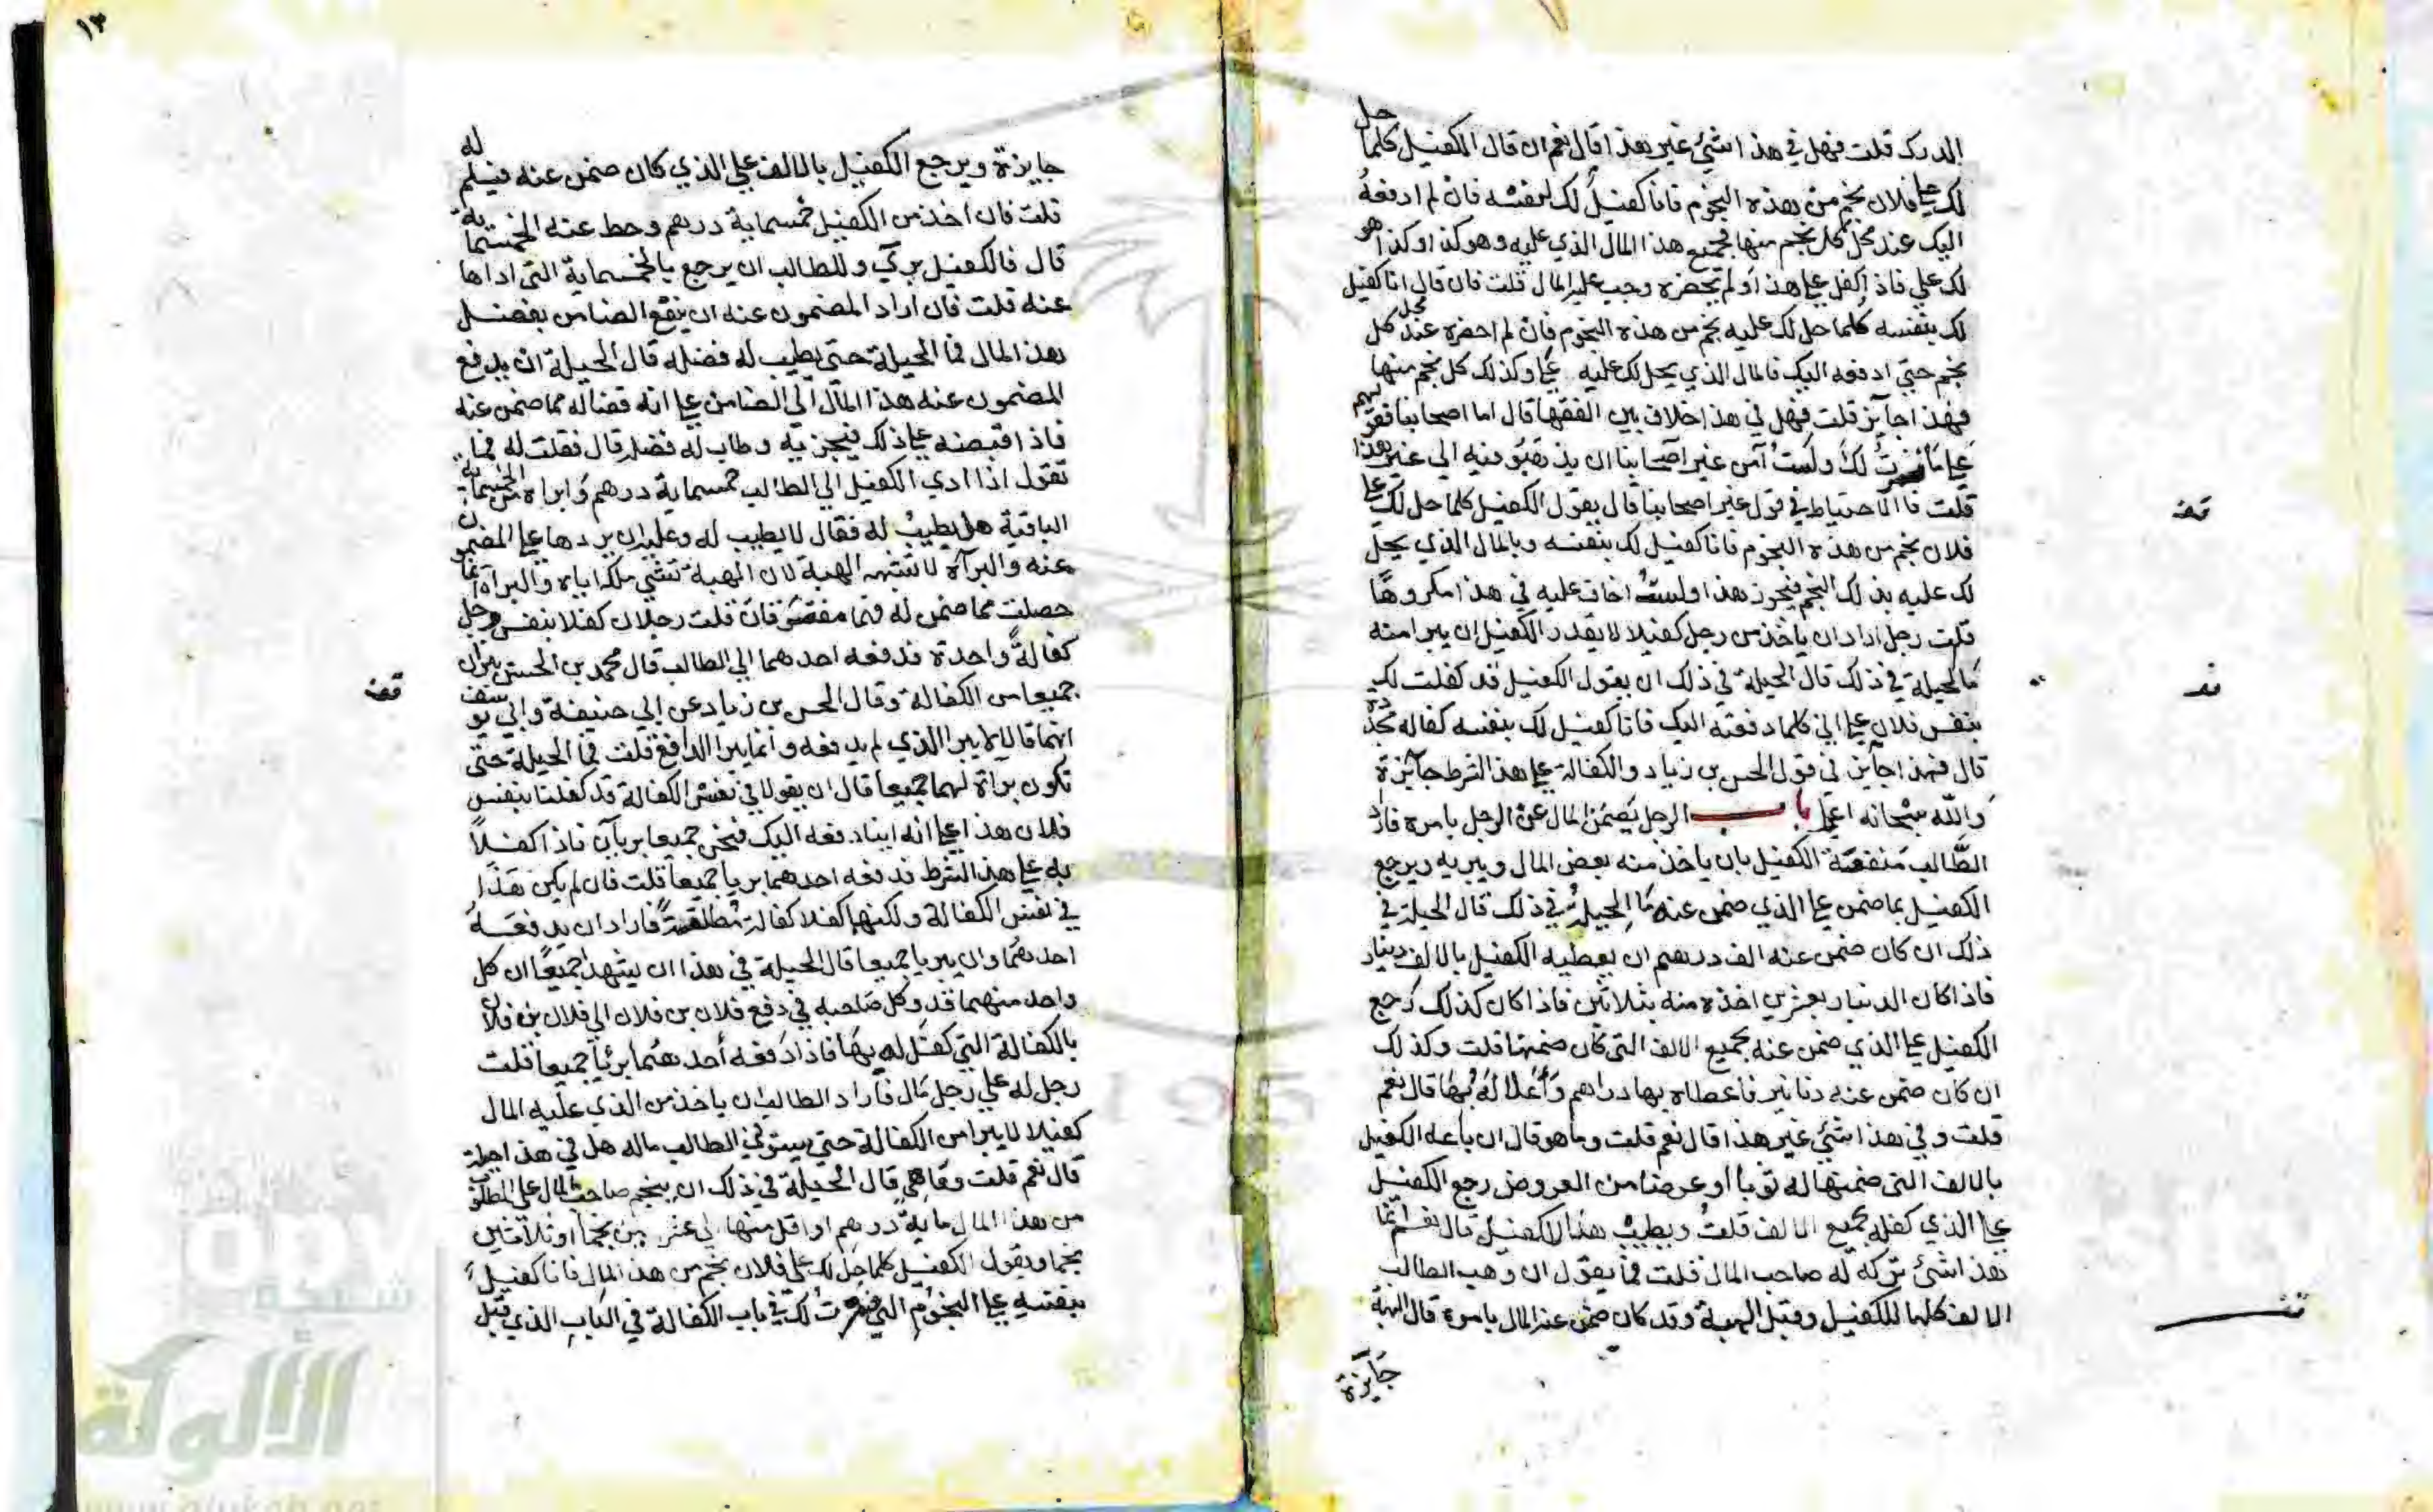 الدرك قلت فهل في هذا شيئ غير هذا قال نعم ان قال الكفيل كلما حل
لك على فلان نجم من هذه النجوم فانا كفيل لك بنفسه فان لم ادفعه
اليك عند محل كل نجم منها فجميع هذا المال الذي عليه وهو كذا وكذا هو
لك علي فاذا كفل على هذا ولم يحضره وجب عليه المال قلت فان قال انا كفيل
لك بنفسه كلما حل لك عليه نجم من هذه النجوم فان لم احضره عند محل كل
نجم حتى ادفعه اليك فالمال الذي يحل لك عليه علي وكذلك كل نجم منها
فهذا جايز قلت فهل في هذا خلاف بين الفقها قال اما اصحابنا فقولهم
على ما لك ولست آمن غير اصحابنا ان يذهبو فيه الى غير هذا
قلت فما الاحتياط في قول غير اصحابنا قال يقول الكفيل كلما حل لك على
فلان نجم من هذه النجوم فانا كفيل لك بنفسه وبالمال الذي يحل
لك عليه بذلك النجم فيجوز هذا ولست اخاف عليه في هذا مكروها
قلت رجل اراد ان ياخذ من رجل كفيلا لا يقدر الكفيل ان يبرا منه
ما الحيلة في ذلك قال الحيلة في ذلك ان يقول الكفيل قد كفلت لك
بنفس فلان على اني كلما دفعته اليك فانا كفيل لك بنفسه كفالة مجددة
قال فهذا جايز في قول الحسن بن زياد والكفالة على هذا الشرط جايزة
والله سبحانه اعلم باب الرجل يضمن المال عن الرجل بامره فاراد
الطالب منفعة الكفيل بان ياخذ منه بعض المال ويبريه ويرجع
الكفيل بما ضمن على الذي ضمن عنه ما الحيلة في ذلك قال الحيلة في
ذلك ان كان ضمن عنه الف درهم ان يعطيه الكفيل بالالف دينار
فاذا كان الدينار بعشرين اخذه منه بثلاثين فاذا كان كذلك رجع
الكفيل على الذي ضمن عنه بجميع الالف التي كان ضمنها قلت وكذلك
ان كان ضمن عنه دنانير فاعطاه بها دراهم واغلا له بها قال نعم
قلت وفي هذا شيئ غير هذا قال نعم قلت وما هو قال ان باعه الكفيل
بالالف التي ضمنها له ثوبا او عرضا من العروض رجع الكفيل
على الذي كفله بجميع الالف قلت ويطيب هذا للكفيل قال نعم انما
هذا شيئ تركه له صاحب المال قلت فما يقول ان وهب الطالب
الالف كلها للكفيل وقبل الهبة وقد كان ضمن عنه المال بامره قال الهبة
جايزة
قف
قف
قف
١٣
جايزة ويرجع الكفيل بالالف على الذي كان ضمن عنه فيسلم له
قلت فان اخذ من الكفيل خمسماية درهم وحط عنه الخمسماية
قال فالكفيل بري وللطالب ان يرجع بالخمسماية التي اداها
عنه قلت فان اراد المضمون عنه ان ينفع الضامن بفضل
هذا المال فما الحيلة حتى يطيب له فضله قال الحيلة ان يدفع
المضمون عنه هذا المال الى الضامن على انه قضا له مما ضمن عنه
فاذا قبضه على ذلك فيجزيه وطاب له فضله قال فقلت له فما
تقول اذا ادي الكفيل الى الطالب خمسماية درهم وابراه من الخمسماية
الباقية هل يطيب له فقال لا يطيب له وعليه ان يردها على المضمون
عنه والبرآة لا تشبه الهبة لان الهبة شئ ملكه اياه والبراة انما
حصلت مما ضمن له فان قلت رجلان كفلا بنفس رجل
كفالة واحدة فدفعه احدهما الى الطالب قال محمد بن الحسن يبران
جميعا من الكفالة وقال الحسن بن زياد عن ابي حنيفة وابي يوسف
انهما قالا لا يبرا الذي لم يدفعه وانما يبرا الدافع قلت فما الحيلة حتى
تكون برآة لهما جميعا قال ان يقولا في نفس الكفالة قد كفلنا بنفس
فلان هذا على انه اينا دفعه اليك فنحن جميعا بريآن فاذا كفلا
به على هذا الشرط فدفعه احدهما بريا جميعا قلت فان لم يكن هذا
في نفس الكفالة ولكنهما كفلا كفالة مطلقة فاراد ان يدفعه
احدهما وان يبريا جميعا قال الحيلة في هذا ان يشهدا جميعا ان كل
واحد منهما قد وكل صاحبه في دفع فلان بن فلان الى فلان بن فلان
بالكفالة التي كفل له بها فاذا دفعه أحدهما برئا جميعا قلت
رجل له على رجل مال فاراد الطالب ان ياخذ من الذي عليه المال
كفيلا لا يبرا من الكفالة حتى يستوفي الطالب ماله هل في هذا حيلة
قال نعم قلت وما هي قال الحيلة في ذلك ان ينجم صاحب المال على المطلوب
من هذا المال ماية درهم او اقل منها الى عشرين نجما او ثلاثين
نجما ويقول الكفيل كلما حل لك على فلان نجم من هذا المال فانا كفيل
بنفسه على النجوم التي لك في باب الكفالة في الباب الذي قبل
قف
شبكة
الألوكة
www.alukah.net